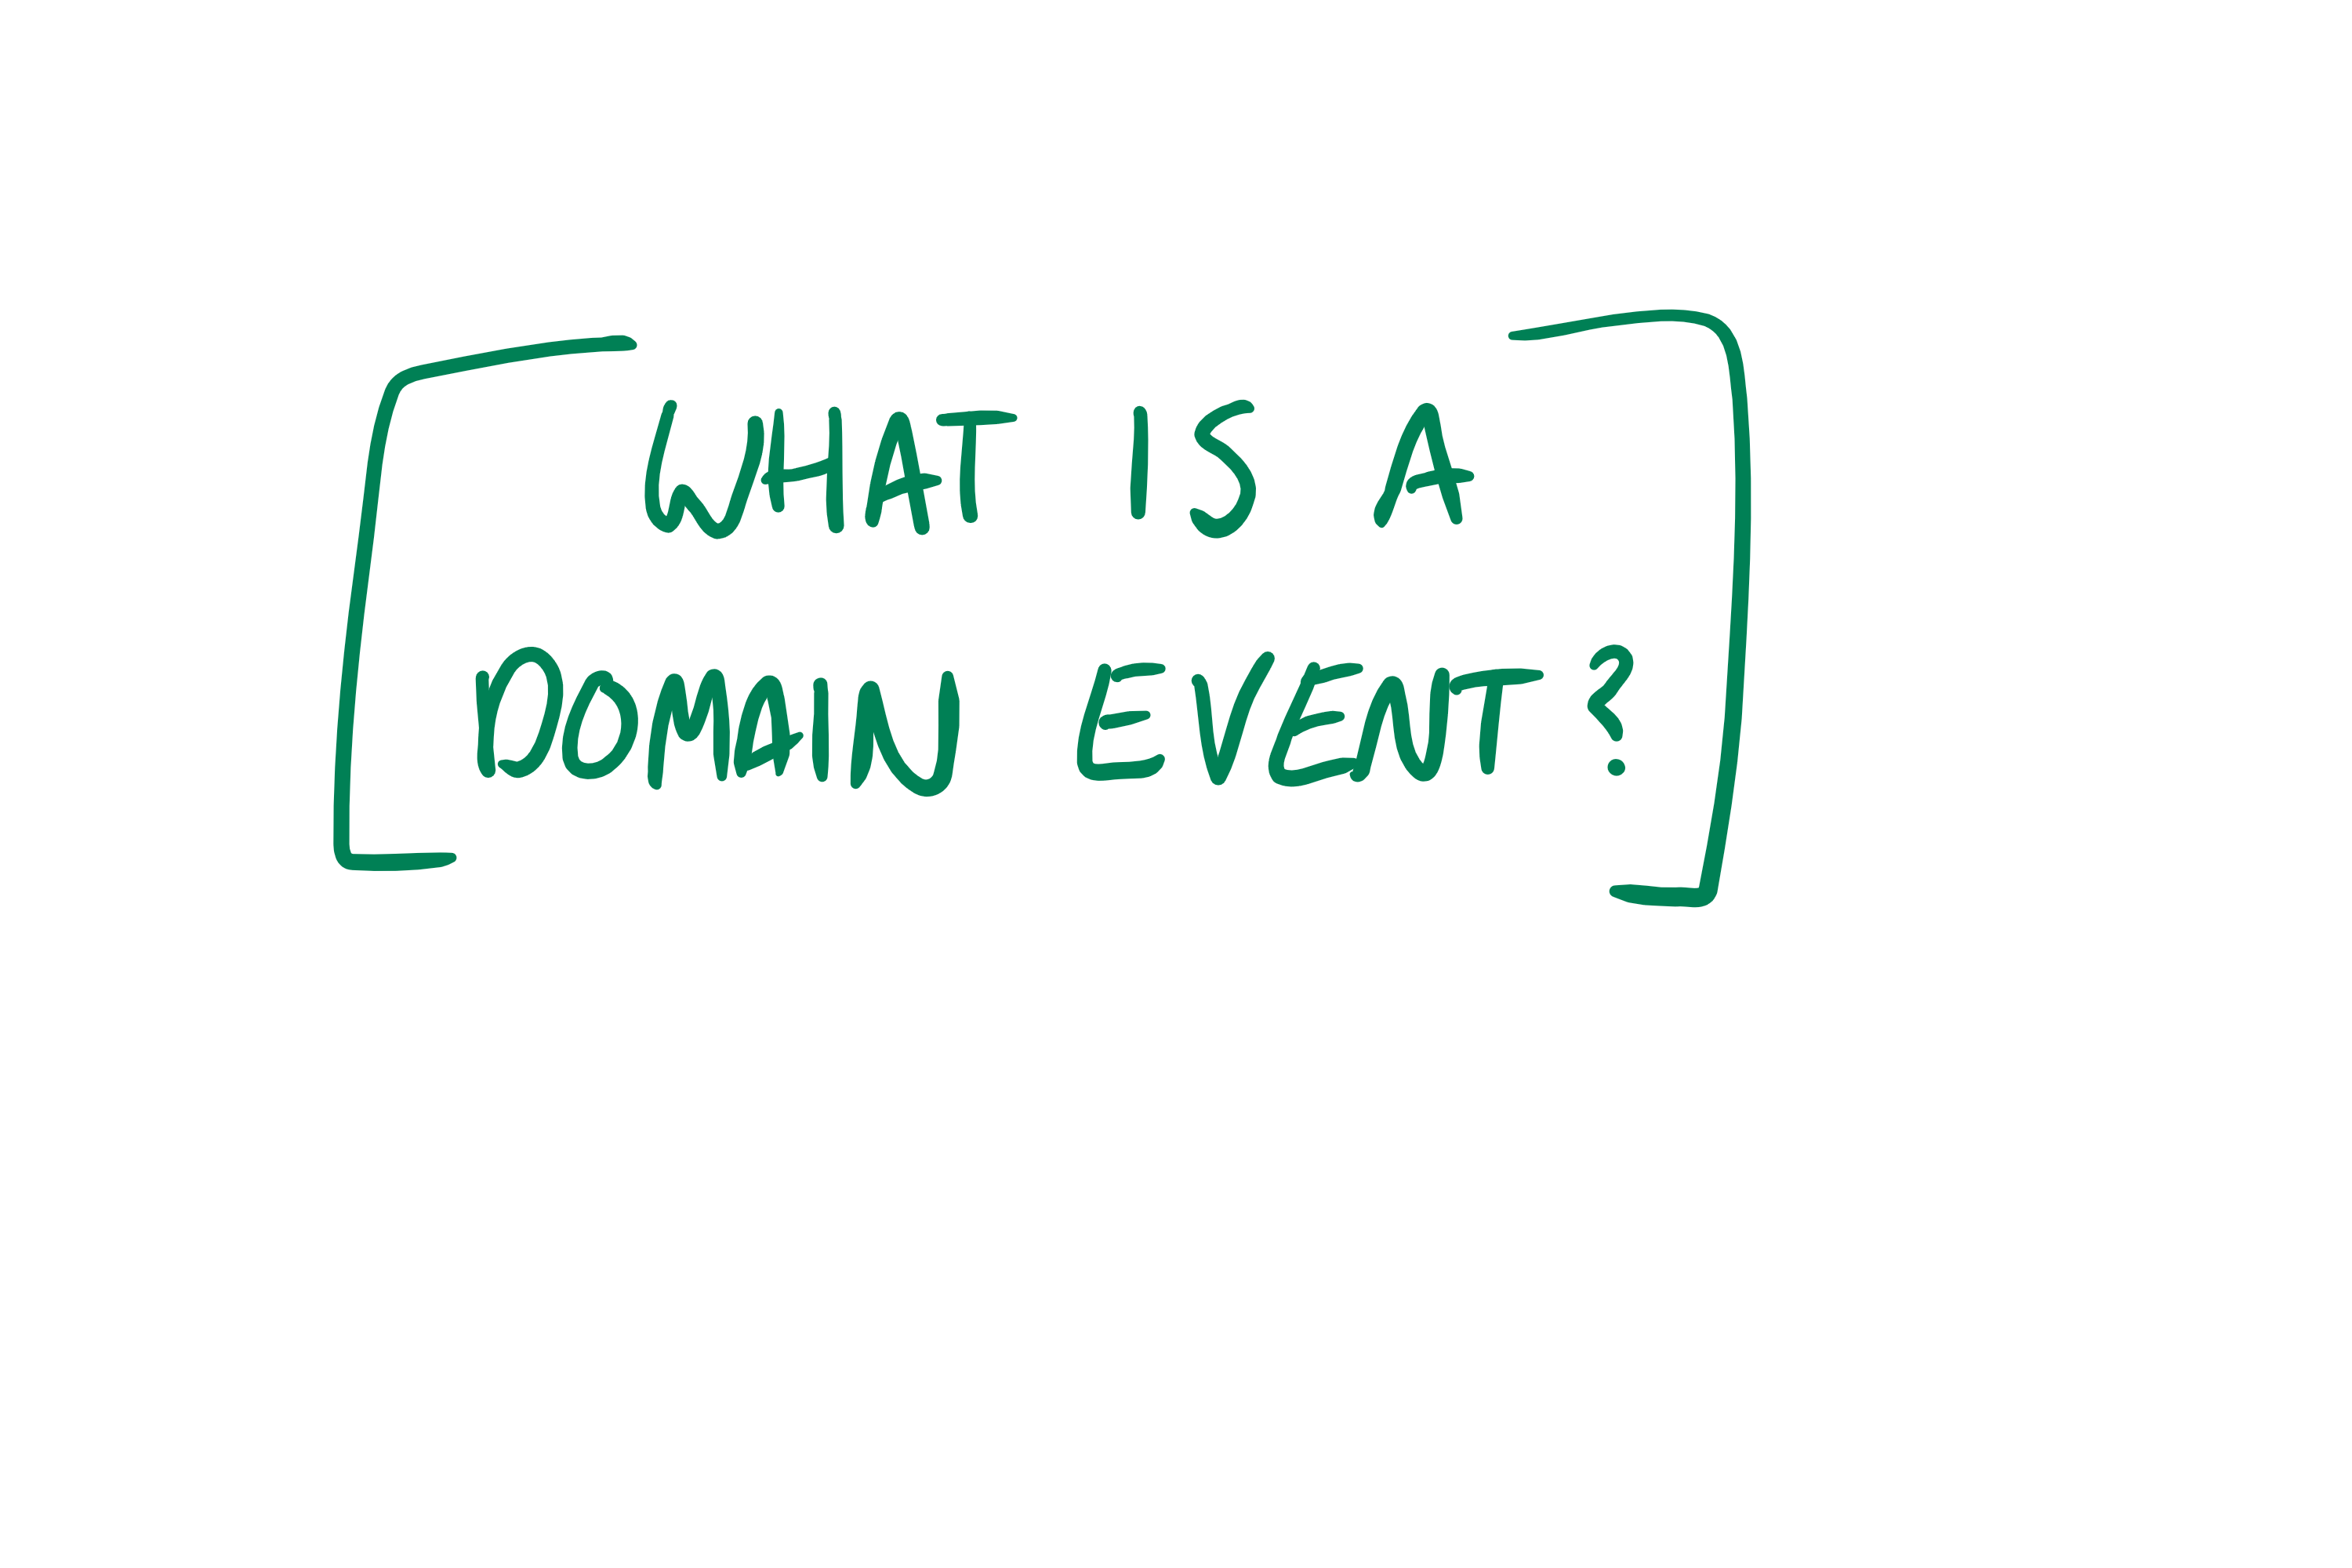 WHAT IS A
DOMAIN EVENT?